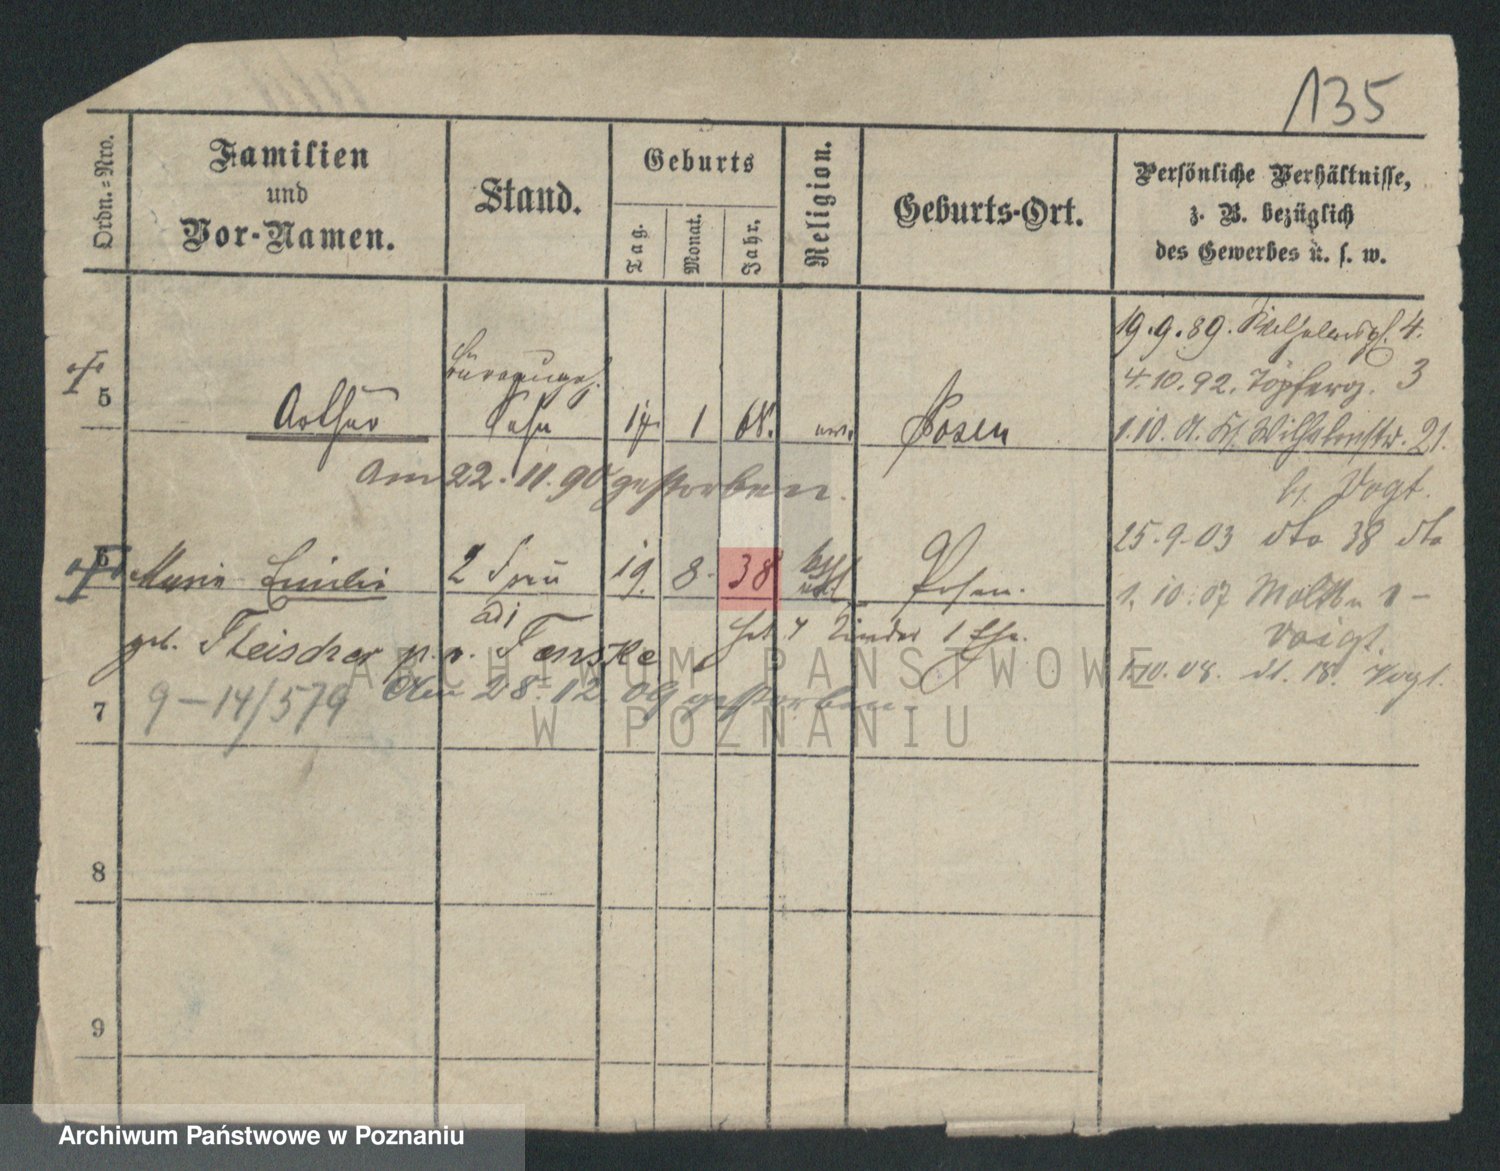 135
Ordn.=Nro.
Familien
und
Vor-Namen.
Stand.
Geburts
Tag.
Monat.
Jahr.
Religion.
Geburts-Ort.
Persönliche Verhältnisse,
z. B. bezüglich
des Gewerbes u. s. w.
19.9.89. Wilhelmspl. 4.
4.10.92. Töpferg. 3
5
Arthur
Sohn
17
1
68.
Posen
1.10. Wilhelmstr. 21.
Am 22.11.90 gestorben.
b/ Vogt.
25.9.03 dto 38 dto
6
Marie Emilie
2 Frau
19.
8.
38
Posen.
1.10.07
Voigt.
geb. Fleischer v. Tenske
hat 4 Kinder 1 Ehe.
1.10.08. 18. Vogt.
7
9-14/579
28.12.09 gestorben
8
9
ARCHIWUM PAŃSTWOWE
W POZNANIU
Archiwum Państwowe w Poznaniu